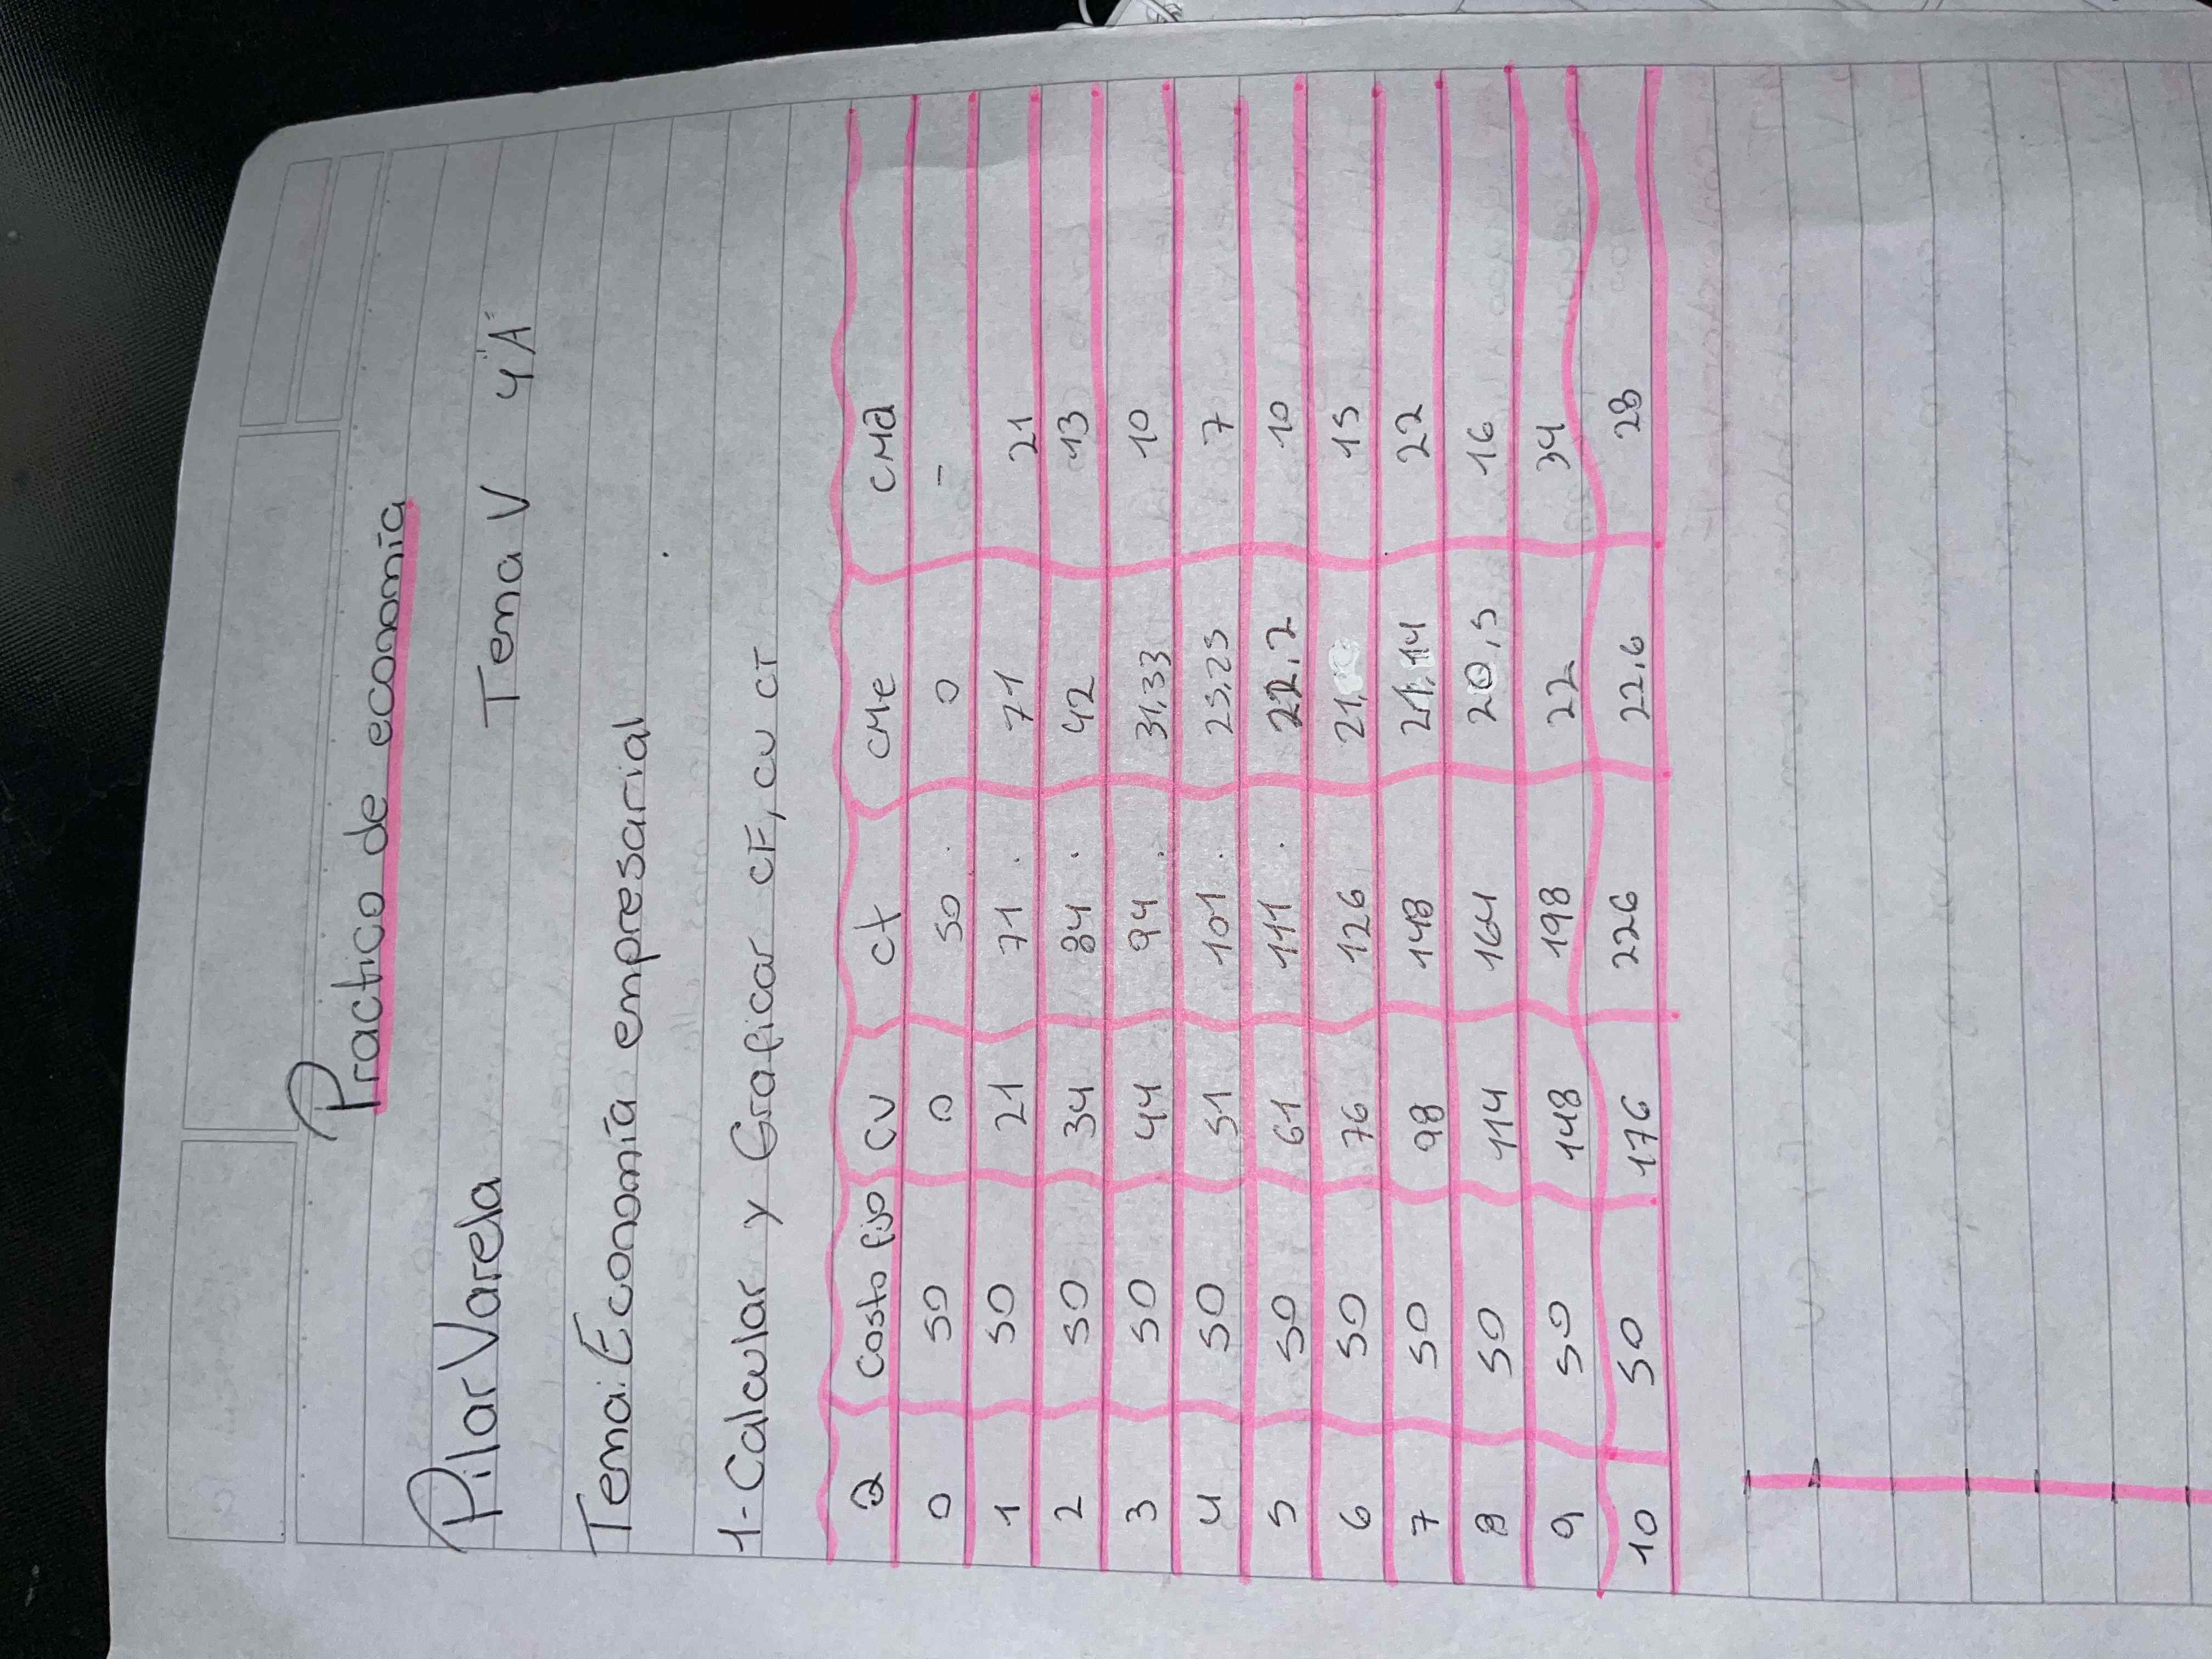 Practico de economía
Pilar Varela Tema V 4"A"
Tema: Economía empresarial
1- Calcular y Graficar CF, CV CT
Q Costo fijo CV Ct CMe CMa
0 50 0 50 0 -
1 50 21 71 71 21
2 50 34 84 42 13
3 50 44 94 31,33 10
4 50 51 101 25,25 7
5 50 61 111 22,2 10
6 50 76 126 21, 15
7 50 98 148 21,14 22
8 50 114 164 20,5 16
9 50 148 198 22 34
10 50 176 226 22,6 28